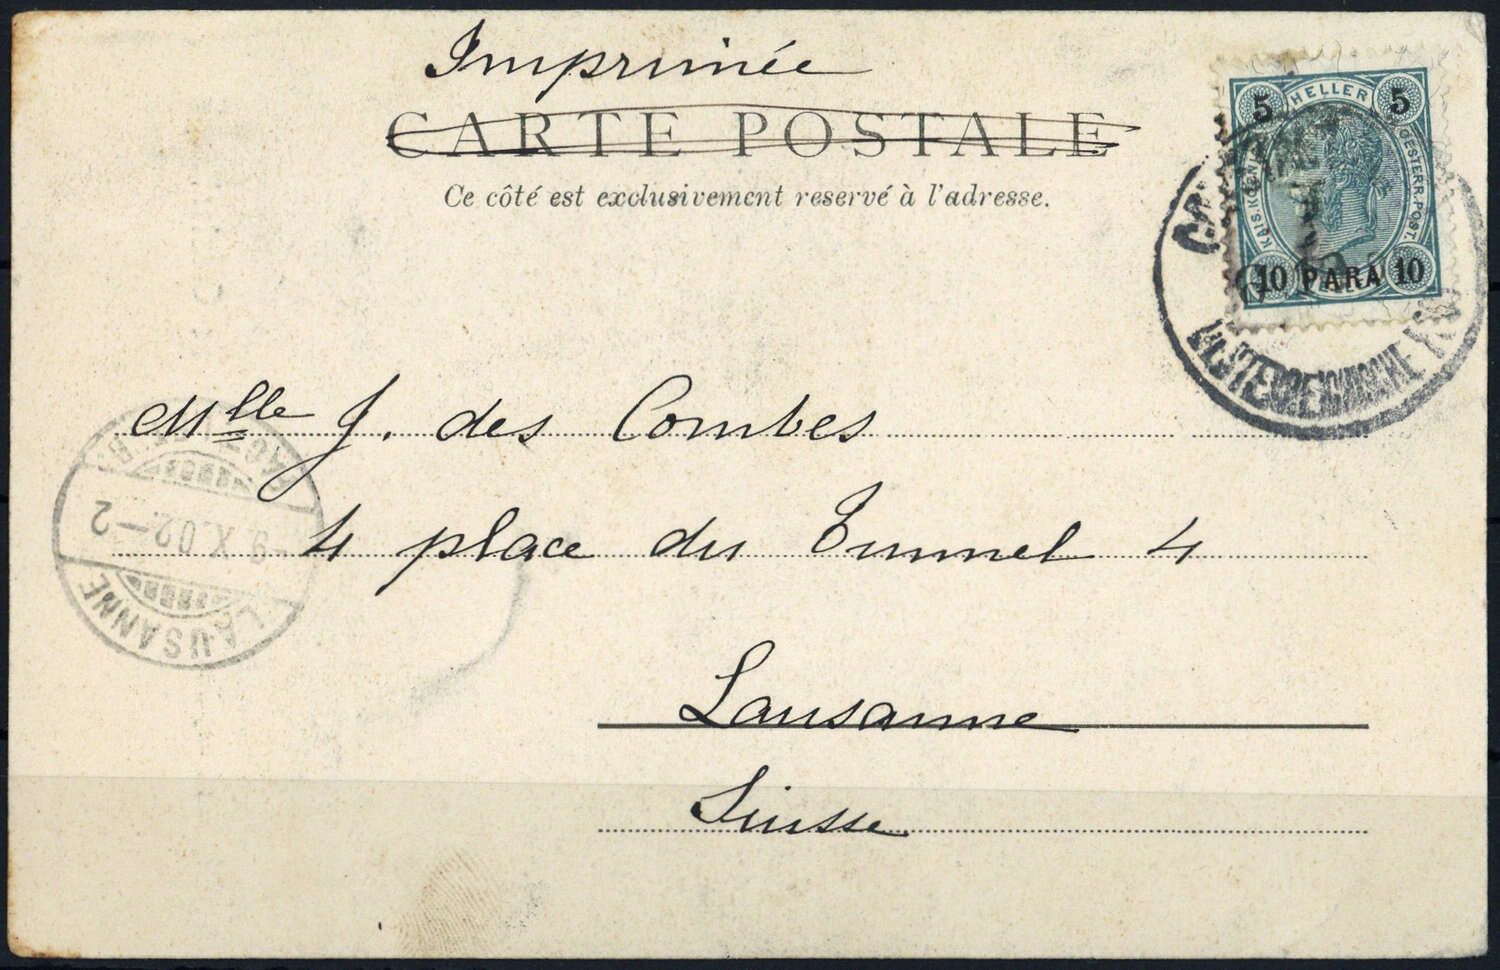 Imprimée
CARTE POSTALE
Ce côté est exclusivement reservé à l'adresse.
5 HELLER 5
KAIS. KÖNIGL. OESTERR. POST.
10 PARA 10
OESTERREICHISCHE
Mlle J. des Combes
4 place du Tunnel 4
Lausanne
Suisse
-9.X.02.-2
LAUSANNE